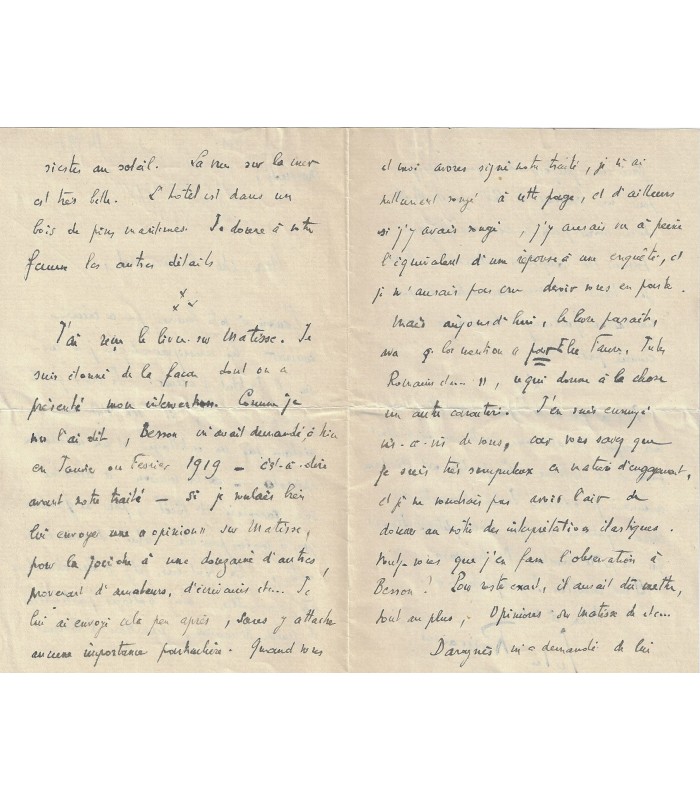 siestes au soleil. La vue sur la mer
est très belle. L'hôtel est dans un
bois de pins maritimes. Je donne à votre
femme les autres détails
x
x x
J'ai reçu le livre sur Matisse. Je
suis étonné de la façon dont on a
présenté mon intervention. Comme je
vous l'ai dit, Besson m'avait demandé,
en Janvier ou Février 1919 – c'est-à-dire
avant notre traité – si je voulais bien
lui envoyer une « opinion » sur Matisse,
pour la joindre à une douzaine d'autres,
provenant d'amateurs, d'écrivains etc... Je
lui ai envoyé cela peu après, sans y attacher
aucune importance particulière. Quand vous
et moi avons signé notre traité, je n'ai
nullement songé à cette page, et d'ailleurs
si j'y avais songé, j'y aurais vu à peine
l'équivalent d'une réponse à une enquête, et
je n'aurais pas cru devoir vous en parler.
Mais aujourd'hui, le livre paraît,
avec la mention « par Elie Faure, Jules
Romains etc... », ce qui donne à la chose
un autre caractère. J'en suis ennuyé
vis-à-vis de vous, car vous savez que
je suis très scrupuleux en matière d'engagement,
et je ne voudrais pas avoir l'air de
donner au nôtre des interprétations élastiques.
Voulez-vous que j'en fasse l'observation à
Besson ? Pour rester exact, il aurait dû mettre,
tout au plus, : Opinions sur Matisse de etc...
Daragnès m'a demandé de lui